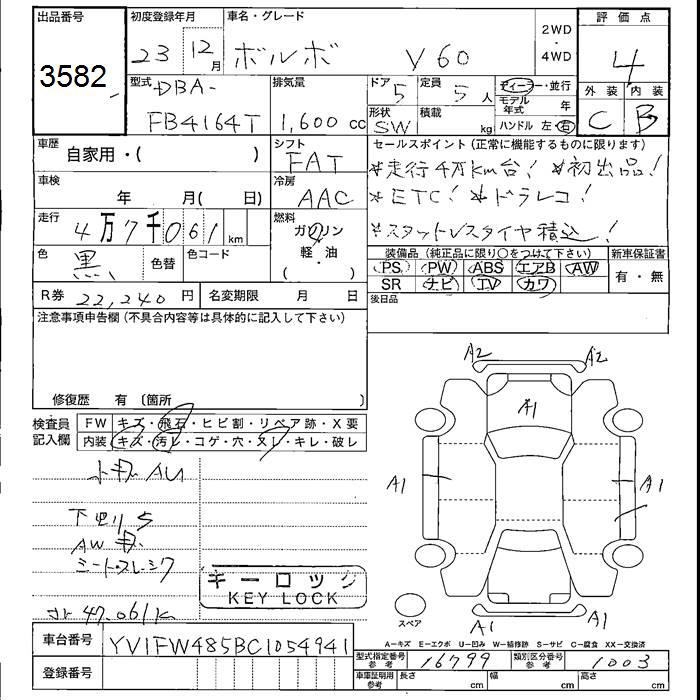 出品番号 初度登録年月 車名・グレード 2WD・4WD 評価点
3582 23 12月 ボルボ V60 4
型式 DBA- 排気量 ドア 5 定員 5人 ディーラー・並行 外装 内装
モデル年式 年
FB4164T 1,600cc 形状 SW 積載 kg ハンドル 左・右 C B
車歴 自家用・( ) シフト FAT セールスポイント(正常に機能するものに限ります)
*走行4万km台! *初出品!
車検 年 月( 日) 冷房 AAC *ETC! *ドラレコ!
走行 4万7千061km 燃料 ガソリン・軽油 ( ・ ) *スタットレスタイヤ積込!
色 黒 色替 色コード 装備品(純正品に限り○をつけて下さい) 新車保証書
PS PW ABS エアB AW 有・無
R券 22,240円 名変期限 月 日 SR ナビ TV カワ
後日品
注意事項申告欄(不具合内容等は具体的に記入して下さい)
修復歴 有(箇所 )
検査員記入欄 FW キズ・飛石・ヒビ割・リペア跡・X要
内装 キズ・汚レ・コゲ・穴・ヌレ・キレ・破レ
A2 A2
A1
A1 A1
A1 A1
AW キズ
キーロック
KEY LOCK
47,061K
スペア
A-キズ E-エクボ U-凹み W-補修跡 S-サビ C-腐食 XX-交換済
車台番号 YV1FW485BC1054941 型式指定番号 参考 16799 類別区分番号 参考 1003
登録番号 車庫証明用 参考 長さ cm 幅 cm 高さ cm